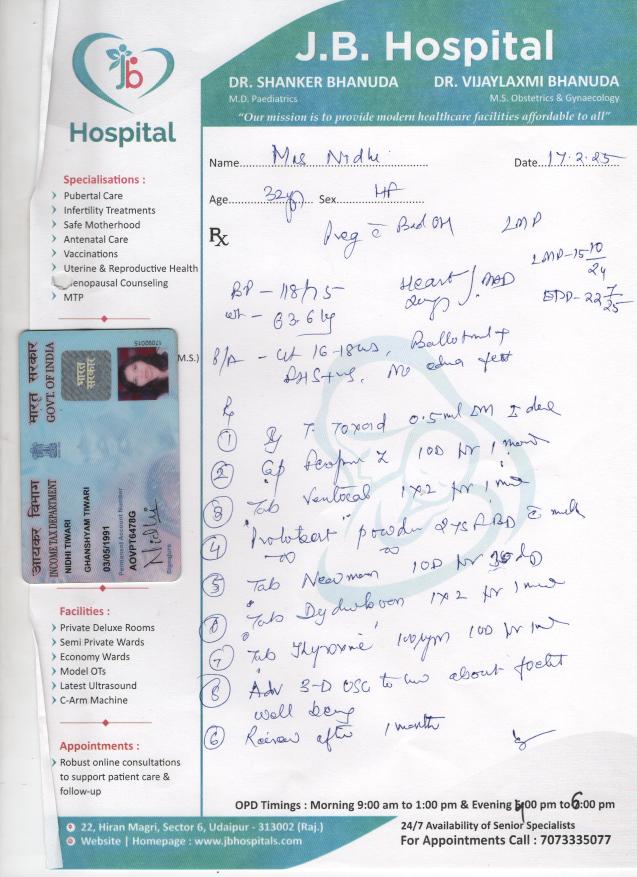 J.B. Hospital
DR. SHANKER BHANUDA
M.D. Paediatrics
DR. VIJAYLAXMI BHANUDA
M.S. Obstetrics & Gynaecology
"Our mission is to provide modern healthcare facilities affordable to all"
jb
Hospital
Specialisations :
Pubertal Care
Infertility Treatments
Safe Motherhood
Antenatal Care
Vaccinations
Uterine & Reproductive Health
enopausal Counseling
MTP
M.S.)
Name Mrs Nidhi Date 17.2.25
Age 32yr Sex HF
Rx
Preg c Bad OH LMP
LMP-15 10/24
EDD-22 7/25
BP - 118/75
wt - 63.6 kg
Heart
NAD
P/A - Ut 16-18ws, Ballotment +
No edna feet
Rx
1 T. Toxoid 0.5ml IM I dose
2 Z 1OD for 1 month
3 Tab 1X2 for 1
4 powder 2 BD c milk
5 Tab 1OD for 30
6 Tab 1X2 for 1
7 Tab Thyroxine 100 1OD for 1
8 Adv 3-D USG to about foetal
well being
6 Review after 1 month
आयकर विभाग
INCOME TAX DEPARTMENT
भारत सरकार
GOVT. OF INDIA
NIDHI TIWARI
GHANSHYAM TIWARI
03/05/1991
Permanent Account Number
AOVPT6478G
Nidhi
Signature
भारत सरकार
17092015
Facilities :
Private Deluxe Rooms
Semi Private Wards
Economy Wards
Model OTs
Latest Ultrasound
C-Arm Machine
Appointments :
Robust online consultations
to support patient care &
follow-up
OPD Timings : Morning 9:00 am to 1:00 pm & Evening 4:00 pm to 6:00 pm
22, Hiran Magri, Sector 6, Udaipur - 313002 (Raj.)
Website | Homepage : www.jbhospitals.com
24/7 Availability of Senior Specialists
For Appointments Call : 7073335077